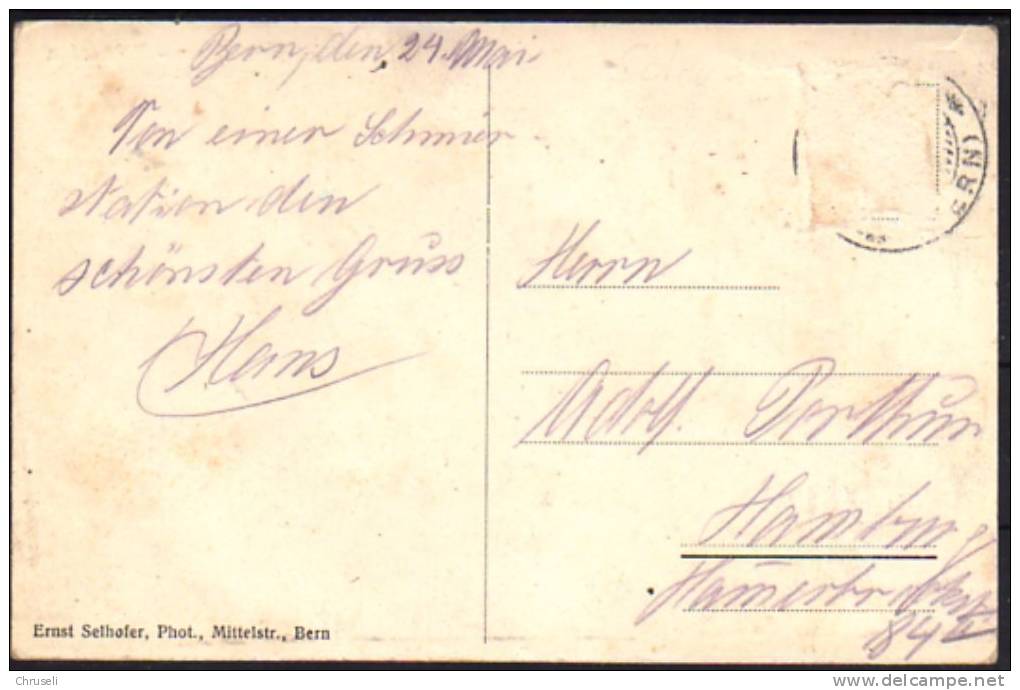 Bern, den 24. Mai
Von einer Schmier
station den
schönsten Gruss
Hans
Herrn
Adolf
Hamburg
84 II
ERN)
Ernst Selhofer, Phot., Mittelstr., Bern
Chruseli
delcampe.net